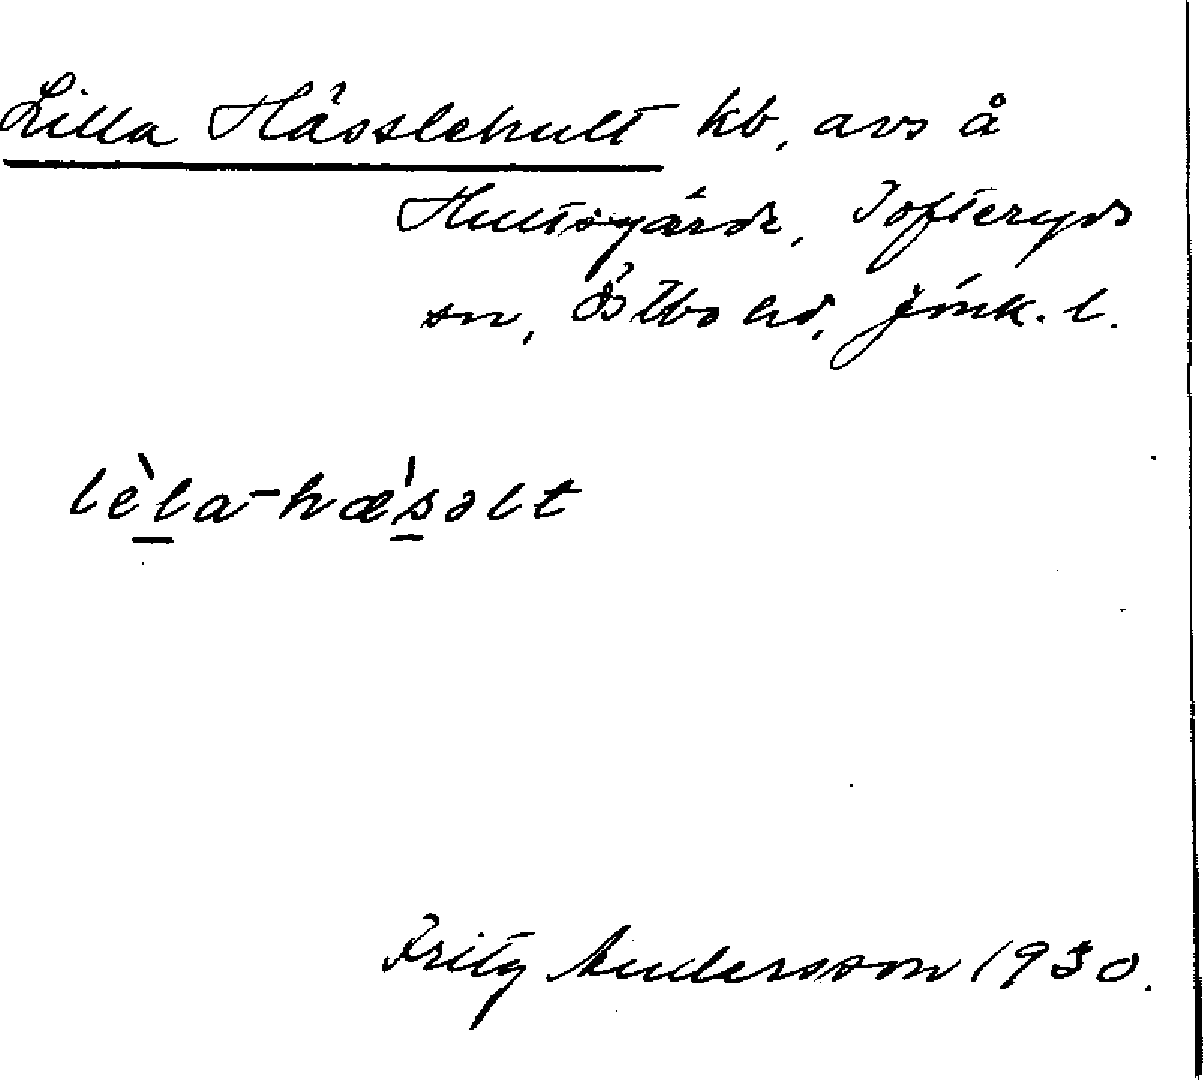 Lilla Hässlehult kb, avs å
Hultsgärde, Tofteryds
sn, Östbo hd, Jönk. l.
lèla-hæ´səlt
Fritz Andersson 1930.